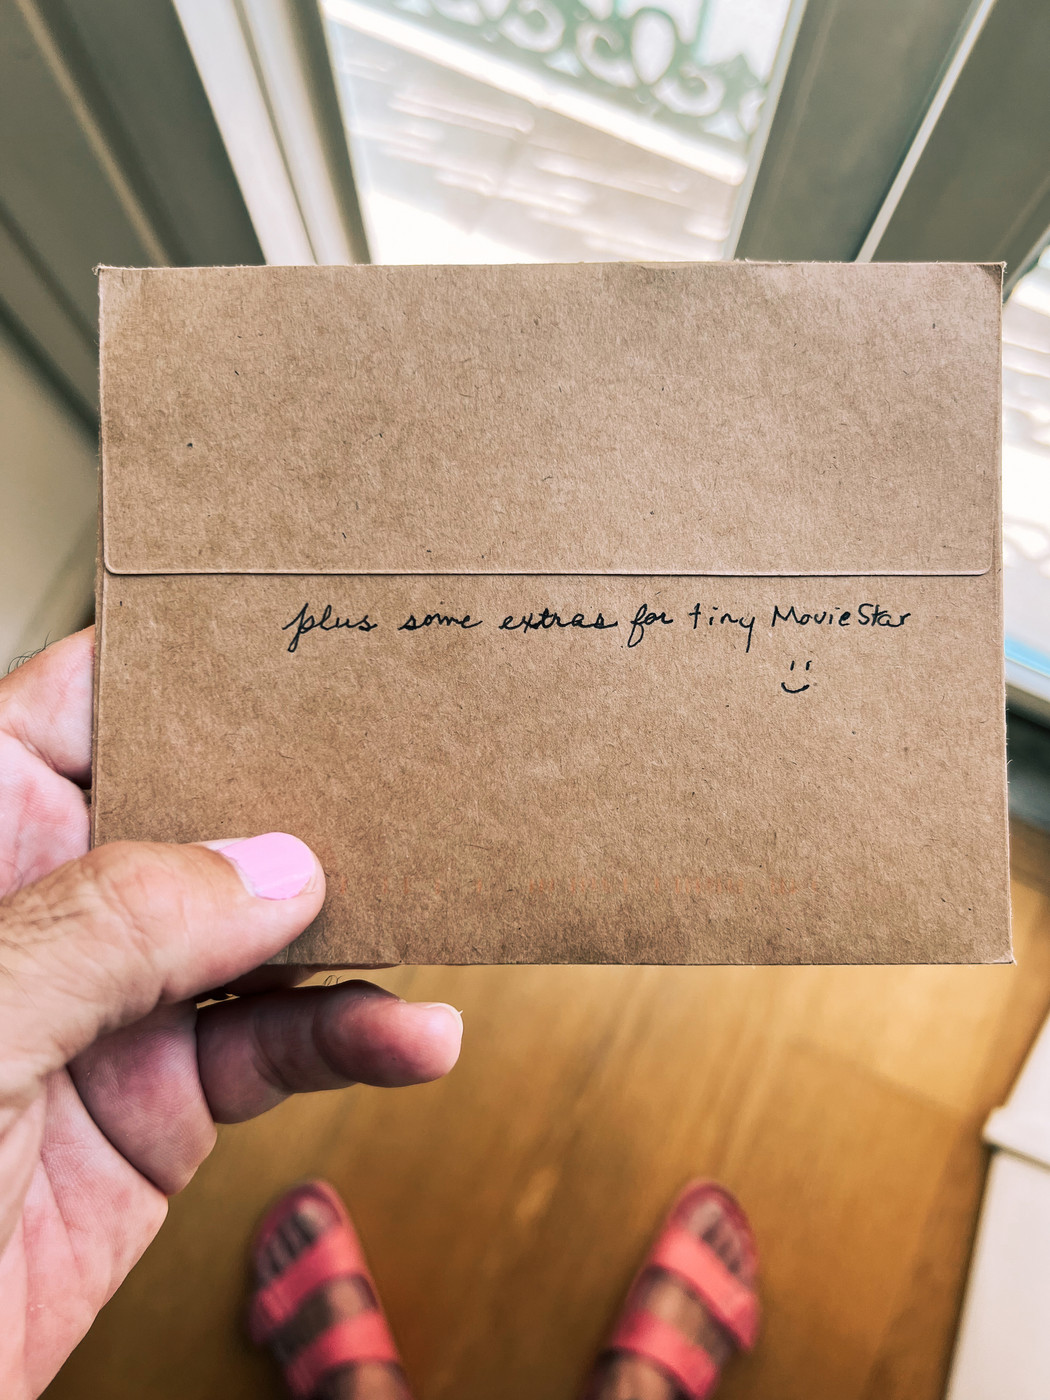 plus some extras for tiny MovieStar